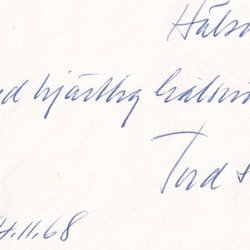 Hälsn
d hjärtlig hälsn
Tord
4.11.68